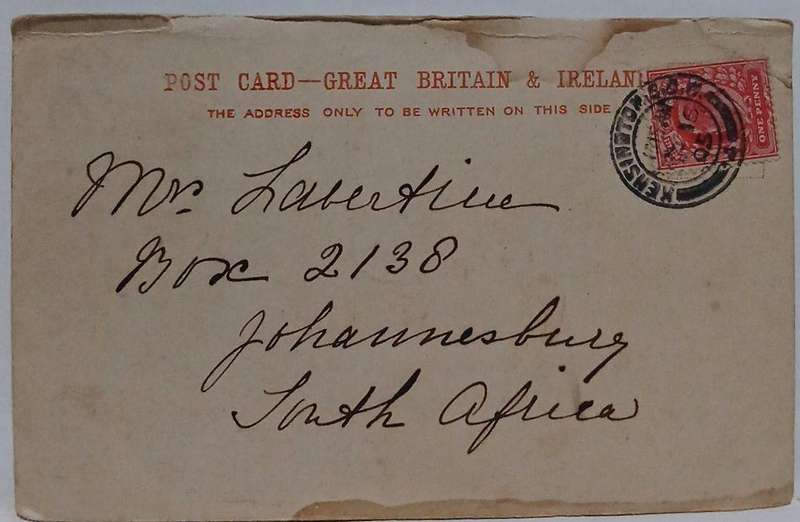 POST CARD—GREAT BRITAIN & IRELAND
THE ADDRESS ONLY TO BE WRITTEN ON THIS SIDE
ONE PENNY
KENSINGTON S.O.W.
16
05
Mrs Labertine
Box 2138
Johannesburg
South Africa